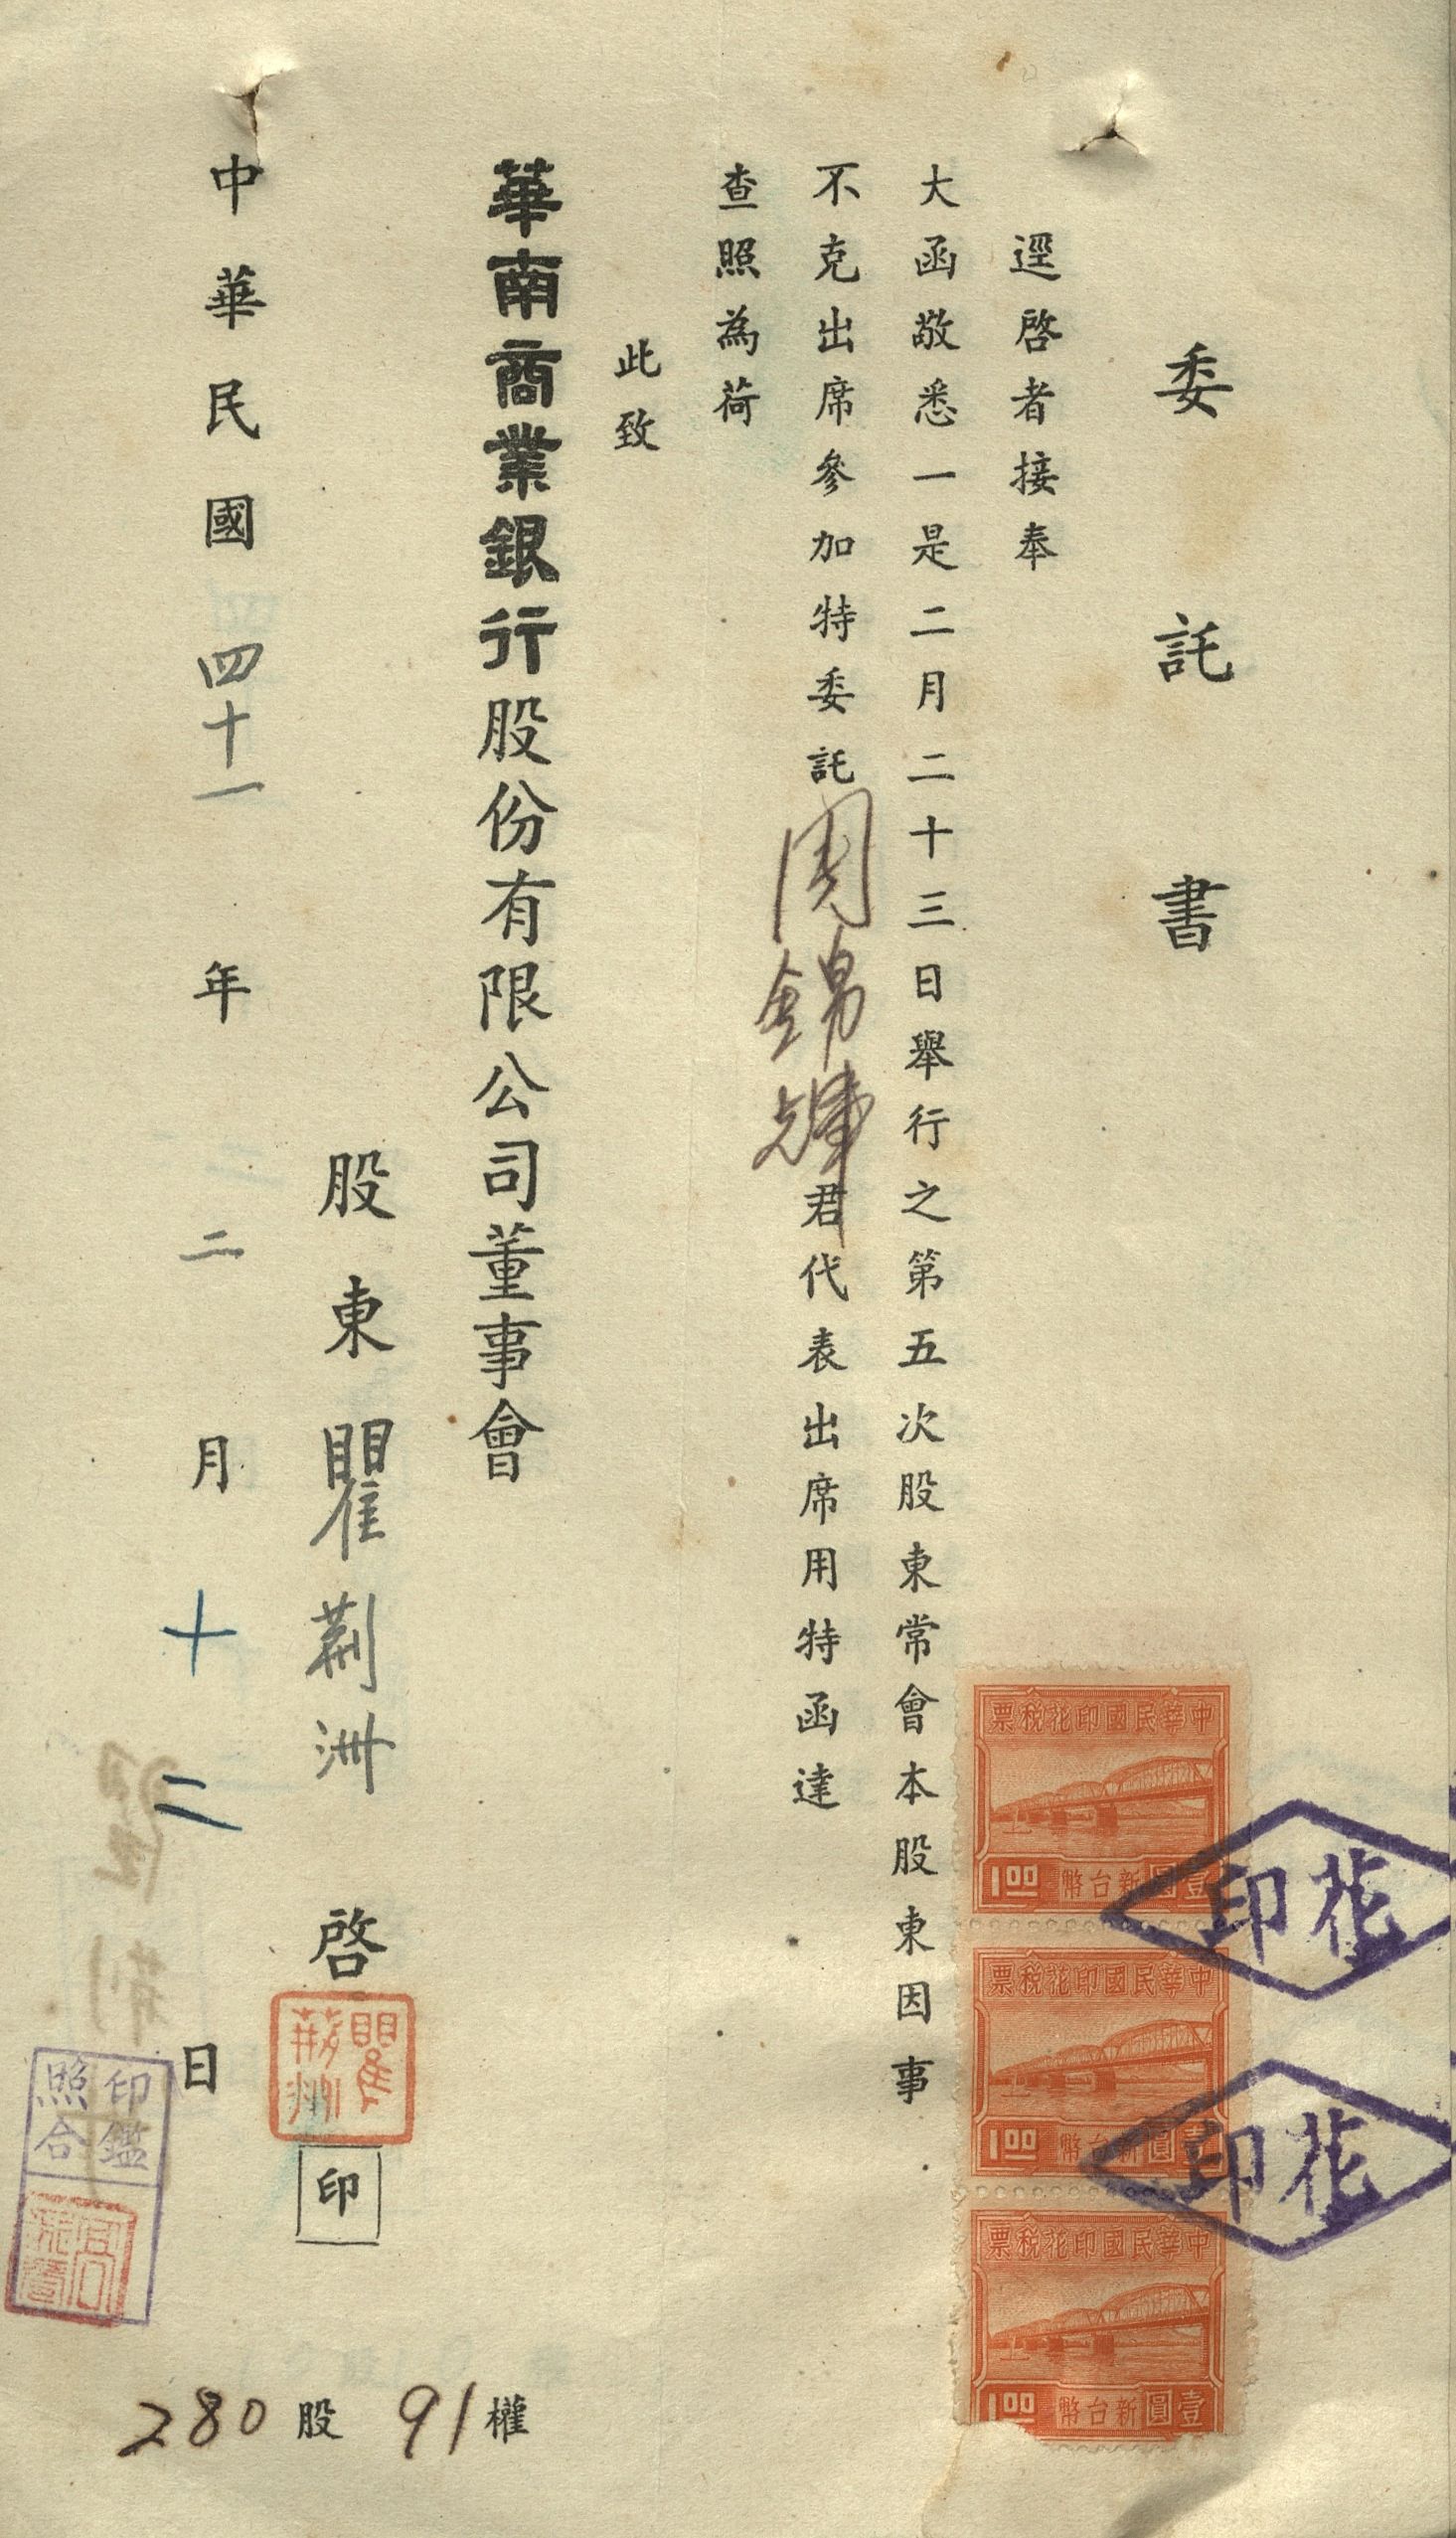 委託書
逕啓者接奉
大函敬悉一是二月二十三日舉行之第五次股東常會本股東因事
不克出席參加特委託周錦輝君代表出席用特函達
查照為荷
此致
華南商業銀行股份有限公司董事會
股東瞿荊洲啓
印
瞿荊洲
中華民國四十一年二月十二日
280股 91權
印鑑
照合
中華民國印花稅票
壹圓新台幣
1.00
中華民國印花稅票
壹圓新台幣
1.00
中華民國印花稅票
壹圓新台幣
1.00
花印
花印